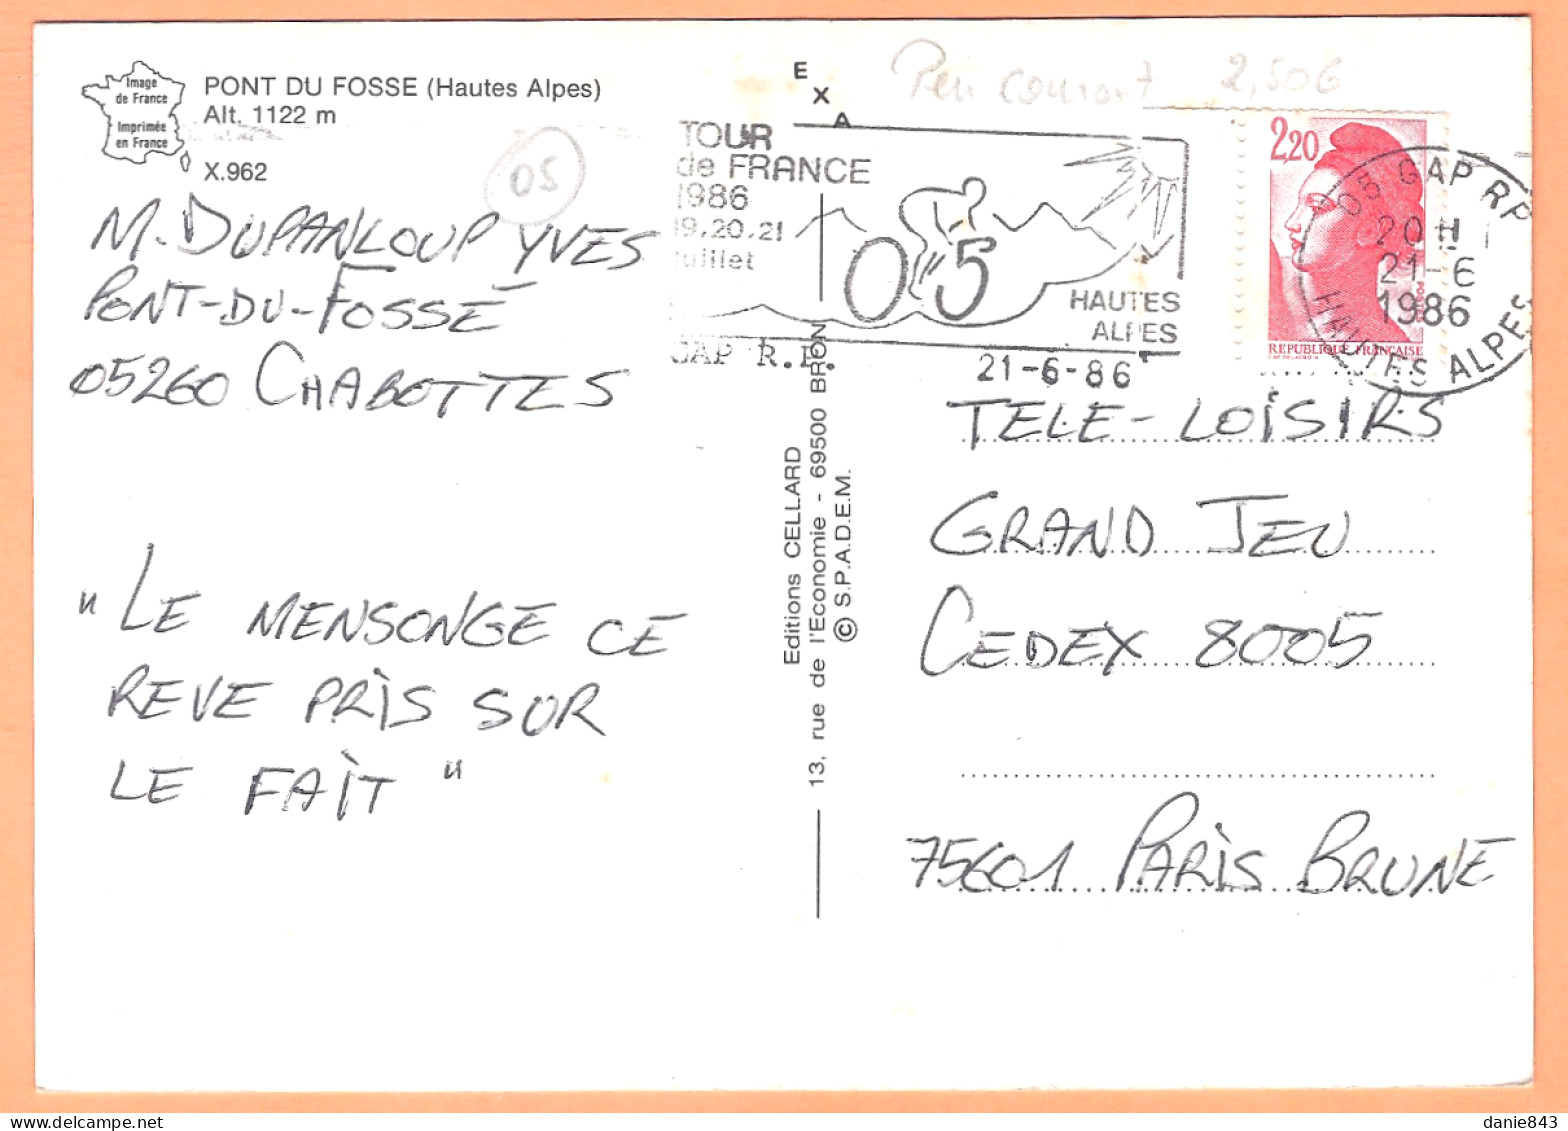 Image
de France
Imprimée
en France
PONT DU FOSSE (Hautes Alpes)
Alt. 1122 m
X.962
05
M. DUPANLOUP YVES
PONT-DU-FOSSÉ
05260 CHABOTTES
" LE MENSONGE CE
REVE PRIS SUR
LE FAIT "
EXA
Editions CELLARD
13, rue de l'Economie - 69500 BRON
© S.P.A.D.E.M.
Peu courant 2,50€
TOUR
de FRANCE
1986
19.20.21
juillet
05
HAUTES
ALPES
GAP R.P.
21-6-86
2,20
POSTES
REPUBLIQUE FRANÇAISE
05 GAP RP
20 H
21-6
1986
HAUTES ALPES
TELE-LOISIRS
GRAND JEU
CEDEX 8005
75601 PARIS BRUNE
danie843